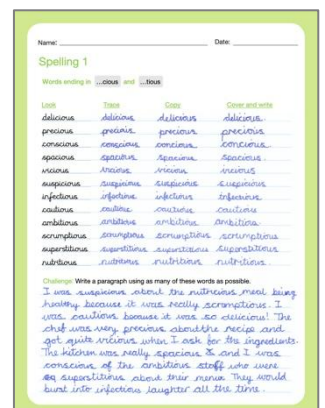 Name: Date:
Spelling 1
Words ending in ...cious and ...tious
Look Trace Copy Cover and write
delicious delicious delicious delicious.
precious precious precious precious
conscious conscious concious concious
spacious spacious spacious spacious.
vicious vicious vicious vicious
suspicious suspicious suspicious suspicious
infectious infectious infectious infectious
cautious cautious cautious cautious
ambitious ambitious ambitious ambitious
scrumptious scrumptious scrumptious scrumptious
superstitious superstitious superstitious superstitious
nutritious nutritious nutritious nutritious
Challenge: Write a paragraph using as many of these words as possible.
I was suspicious about the nutricious meal being
healthy because it was really scrumptious. I
was cautious because it was so delicious! The
chef was very precious about the recipe and
got quite vicious when I ask for the ingredients.
The kitchen was really spacious & and I was
conscious of the ambitious staff who were
superstitious about their menu. They would
burst into infectious laughter all the time.